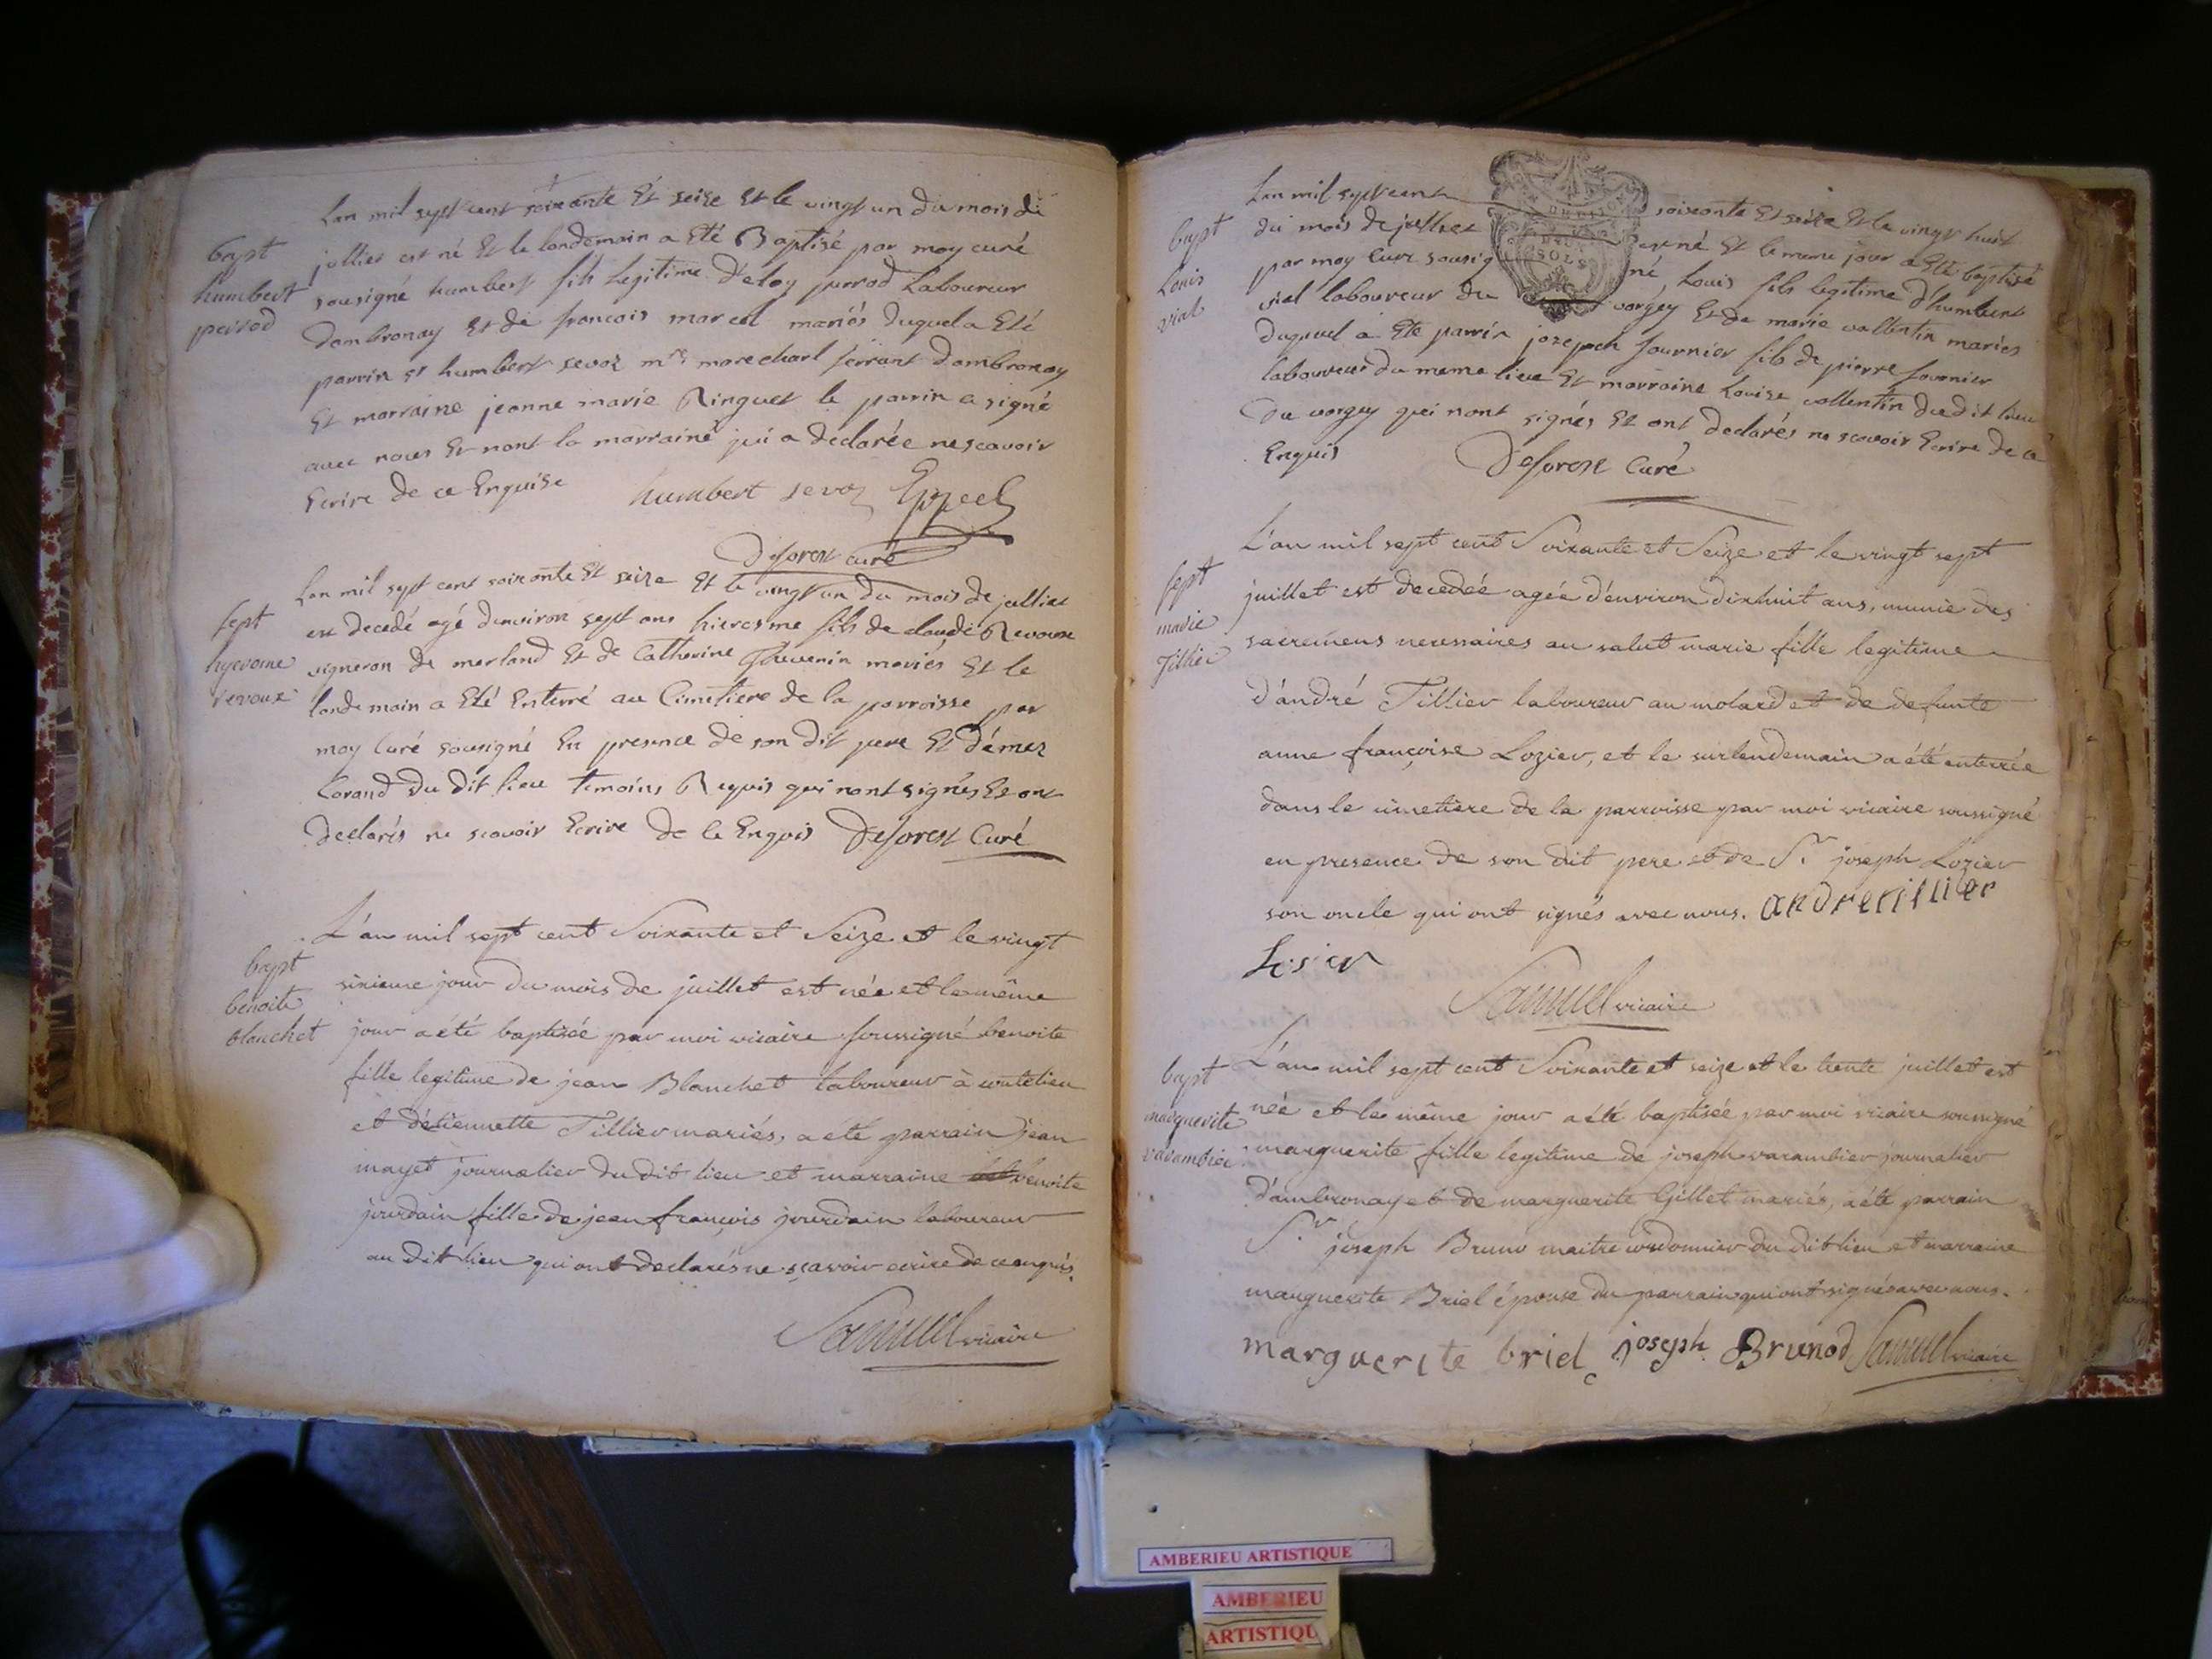 Lan mil sept cent soixante Et seize Et le vingt un du mois de
bapt
humbert
perrod
jullier est né Et le landemain a Eté Baptisé par moy curé
sousigné humbert fils Legitime d'eloy perrod Laboureur
dambronay Et de francois marcel mariés duquel a Eté
parrin sr humbert sevoz mre marechal ferrant dambronay
Et marraine jeanne marie Ringuet le parrin a signé
avec nous Et nont la marraine qui a declarée ne scavoir
Ecrire de ce Enquise humbert sevoz
Deforest curé
Lan mil sept cent soixante Et seize Et le vingt un du mois de jullier
sept
hyerome
revoux
est decedé agé denviron sept ans hieros me fils de claude Revoux
vigneron de merland Et de Catherine Thévenin mariés Et le
lande main a Eté Enterré au Cimetiere de la parroisse par
moy Curé sousigné En presence de son dit pere Et d'émez
Corand du dit lieu temoins Requis qui nont signés Et ont
declarés ne scavoir Ecrire de ce Enquis Deforest Curé
L'an mil sept cent Soixante et Seize et le vingt
bapt
benoite
blanchet
sixieme jour du mois de juillet est née et le même
jour a été baptisée par moi vicaire soussigné benoite
fille legitime de jean Blanchet laboureur à coutelieu
et détiennette Tillier mariés, a eté parrain jean
mayet journalier du dit lieu et marraine benoite
jourdain fille de jean françois jourdain laboureur
au dit lieu qui ont declarés ne sçavoir ecrire de ce enquis.
Samuel vicaire
Lan mil sept cent soixante Et seize Et le vingt huit
bapt
Louis
vial
du mois de jullier est né Et le meme jour a Eté baptisé
par moy Curé sousigné, Louis fils legitime d'humbert
vial laboureur du vorgey Et de marie vallentin mariés
duquel a Eté parrin jozepch fournier fils de pierre fournier
laboureur du meme lieu Et marraine Louise vallentin dudit lieu
du vorgey qui nont signés Et ont declarés ne scavoir Ecrire de ce
Enquis Deforest Curé
L'an mil sept cent Soixante et Seize et le vingt sept
sept
marie
Tillier
juillet est decedée agée d'environ dixhuit ans, munie des
sacremens necessaires au salut marie fille legitime
d'andré Tillier laboureur au molard et de defunte
anne françoise Lozier, et le surlendemain a été enterrée
dans le cimetière de la parroisse par moi vicaire soussigné
en presence de son dit pere et de Sr joseph Lozier
son oncle qui ont signés avec nous. andre tillier
Losier
Samuel vicaire
L'an mil sept cent Soixante et seize et le trente juillet est
bapt
marguerite
varambier
née et le même jour a été baptisée par moi vicaire soussigné
marguerite fille legitime de joseph varambier journalier
d'ambronay et de marguerite Gillet mariés, a été parrain
Sr joseph Bruno maitre cordonnier du dit lieu et marraine
marguerite Briel épouse du parrain qui ont signés avec nous.
marguerite briel joseph Brunod Samuel vicaire
AMBERIEU ARTISTIQUE
AMBERIEU
ARTISTIQU